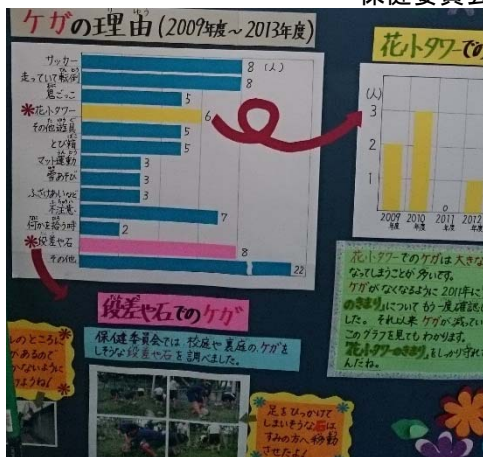 保健委員会
ケガの理由(2009年度～2013年度)
サッカー 8(人)
走っていて転倒 8
鬼ごっこ 5
*花小タワー 6
その他遊具 5
とび箱 5
マット運動 3
雪あそび 3
ふざけあいなど 3
不注意 7
何かを拾う時 2
*段差や石 8
その他 22
花小タワーでの
(人)
3
2
1
0
2009年度 2010年度 2011年度 2012年度
花小タワーでのケガは大きな
なってしまうことが多いです。
ケガがなくなるように2011年に
のきまり」についてもう一度確認し
した。それ以来ケガが減ってい
このグラフを見てもわかります。
「花小タワーのきまり」をしっかり守れて
んだね。
段差や石でのケガ
保健委員会では校庭や裏庭のケガを
しそうな段差や石を調べました。
のところに
があるので
かないように
けようね!
足をひっかけて
しまいそうな石は
すみの方へ移動
させたよ!